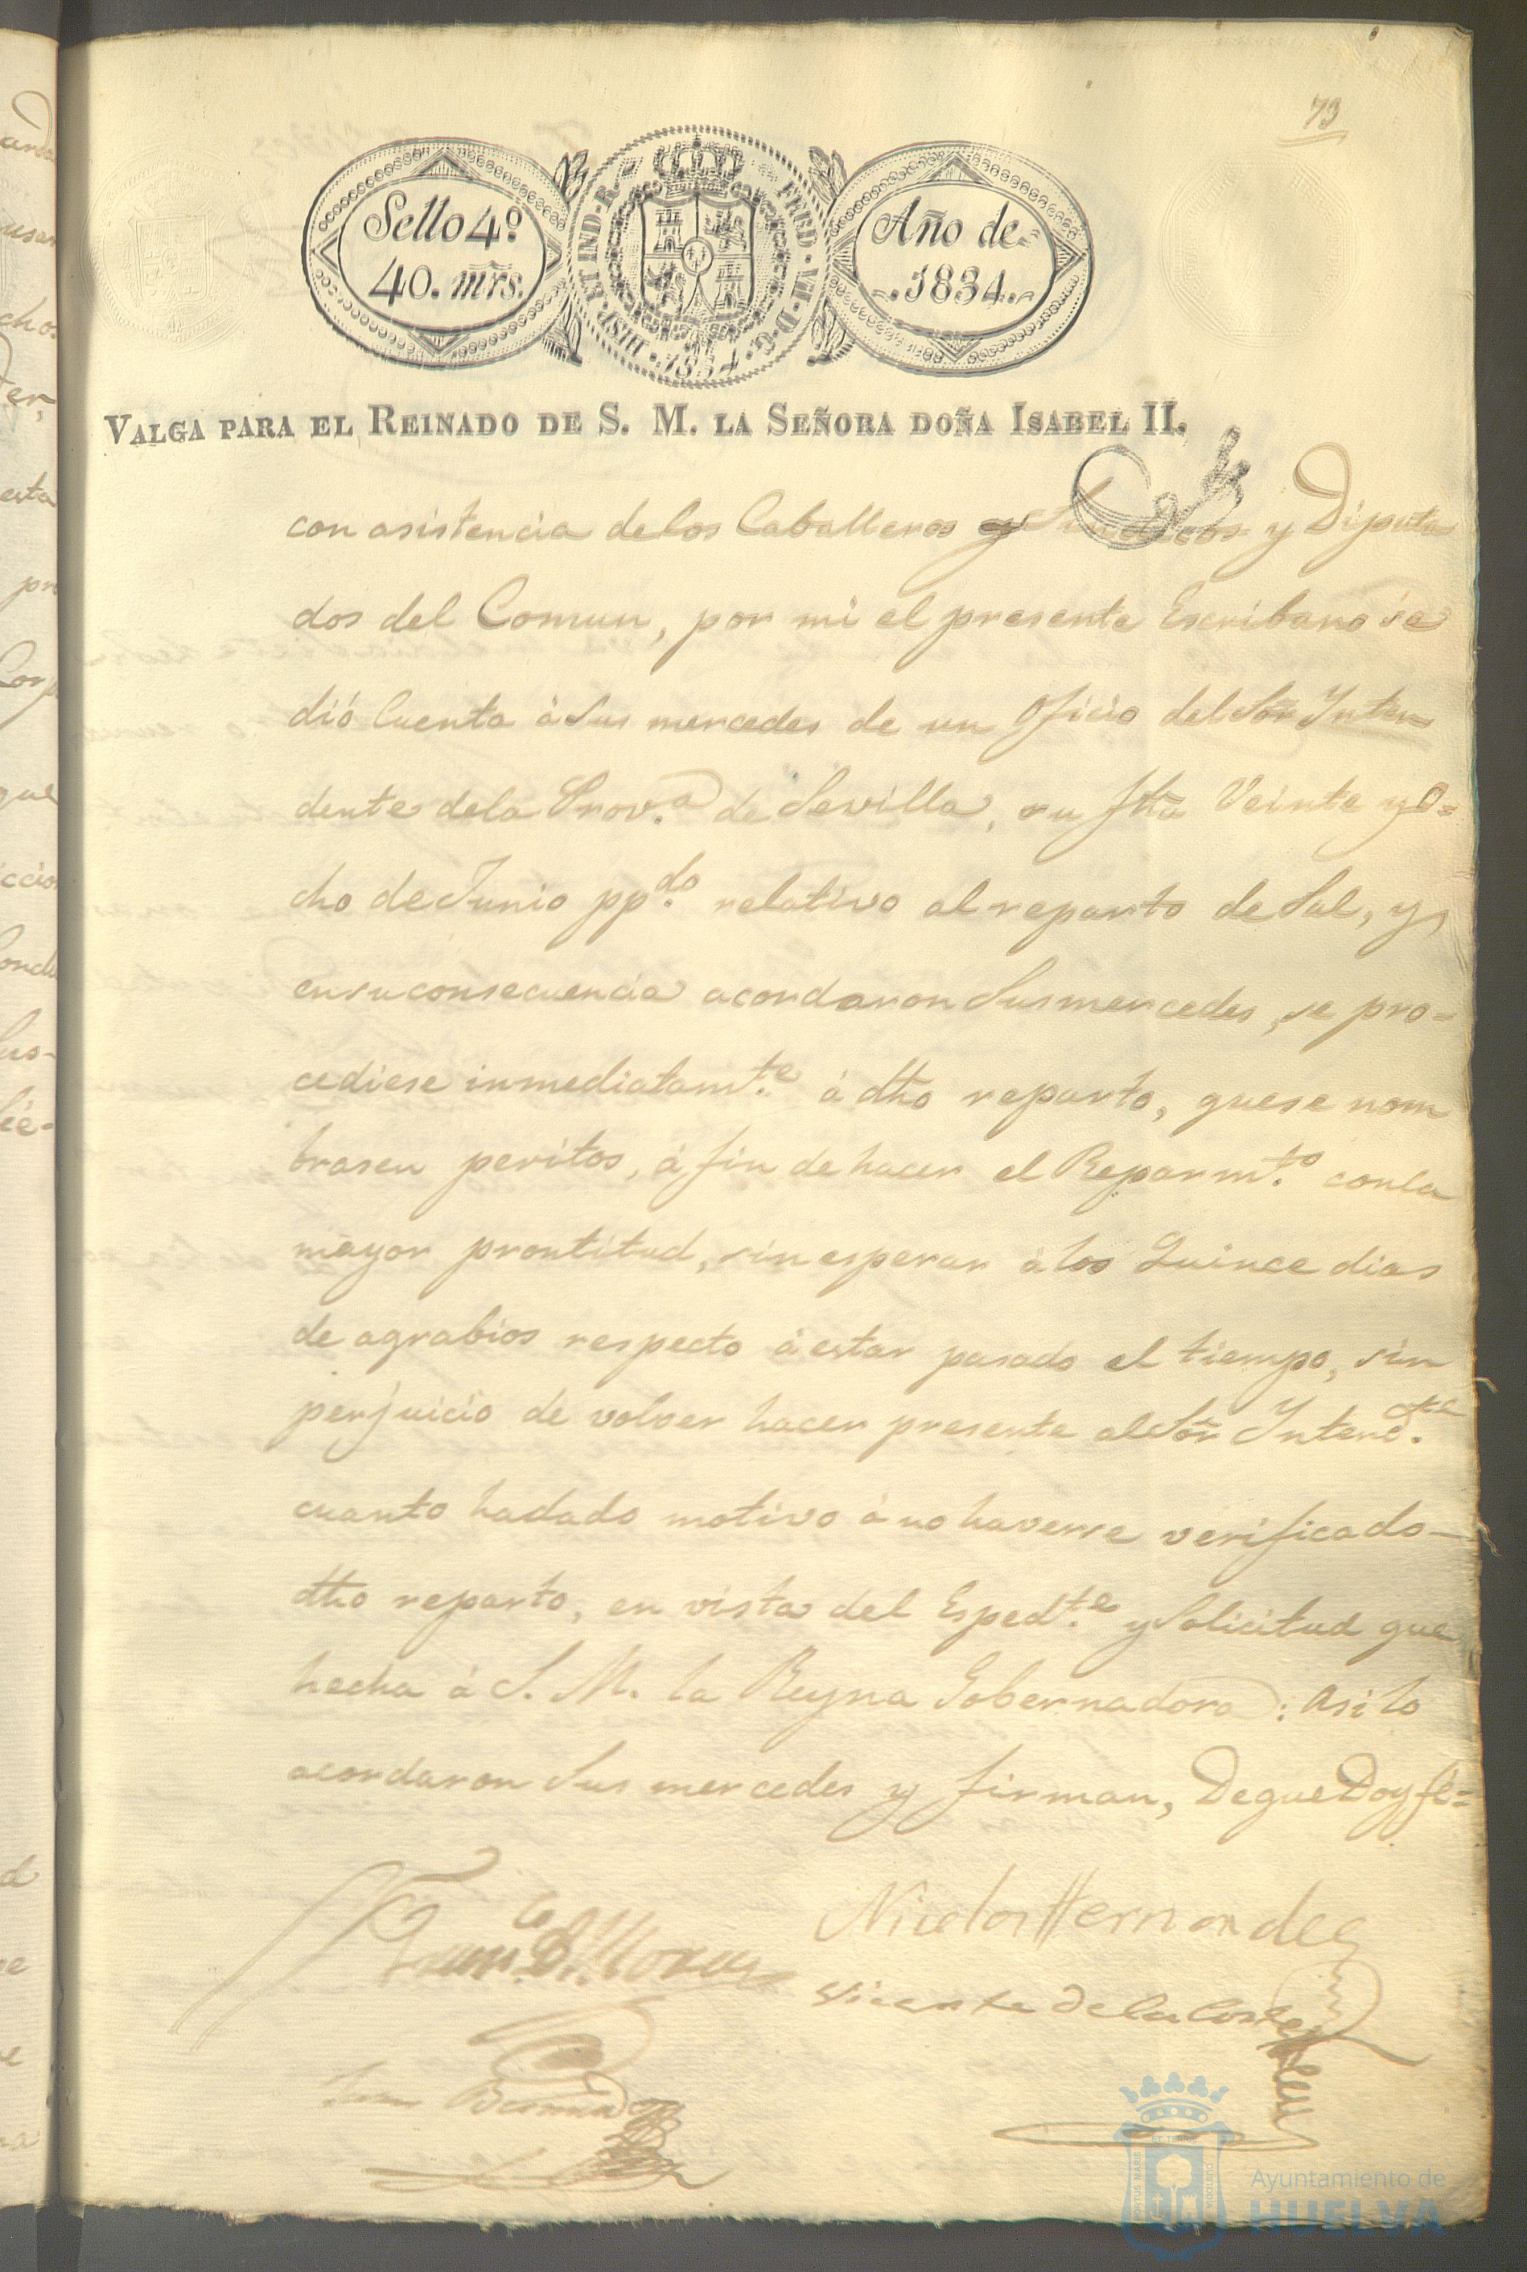 73
Sello 4.º
40. mrs.
HISP. ET IND. R. FERD. VII. D. G. 1834.
Año de
1834.
VALGA PARA EL REINADO DE S. M. LA SEÑORA DOÑA ISABEL II.
con asistencia delos Caballeros y Sindicos y Diputa
dos del Comun, por mi el presente Escribano se
dió Cuenta á Sus mercedes de un Oficio del Sōr Inten
dente dela Prov.ª de Sevilla, su fha Veinte y O=
cho de Junio pp.do relativo al reparto de Sal, y
ensuconsecuencia acordaron Susmercedes, se pro=
cediese inmediatam.te á dho reparto, quese nom
brasen peritos, á fin de hacer el Reparm.to conla
mayor prontitud, sin esperar á los Quince dias
de agrabios respecto á estar pasado el tiempo, sin
perjuicio de volver hacer presente al Sōr Intend.te
cuanto hadado motivo á no haverse verificado
dho reparto, en vista del Esped.te y Solicitud que
hecha á S. M. la Reyna Gobernadora: Asi lo
acordaron Sus mercedes y firman, Deque Doy fé=
Fran.co
Nicolas Hernandez
Vicente de la Corte
Juan
cho
ter,
esta
pro
que
PORTUS MARIS ET TERRE CUSTODIA
Ayuntamiento de
HUELVA